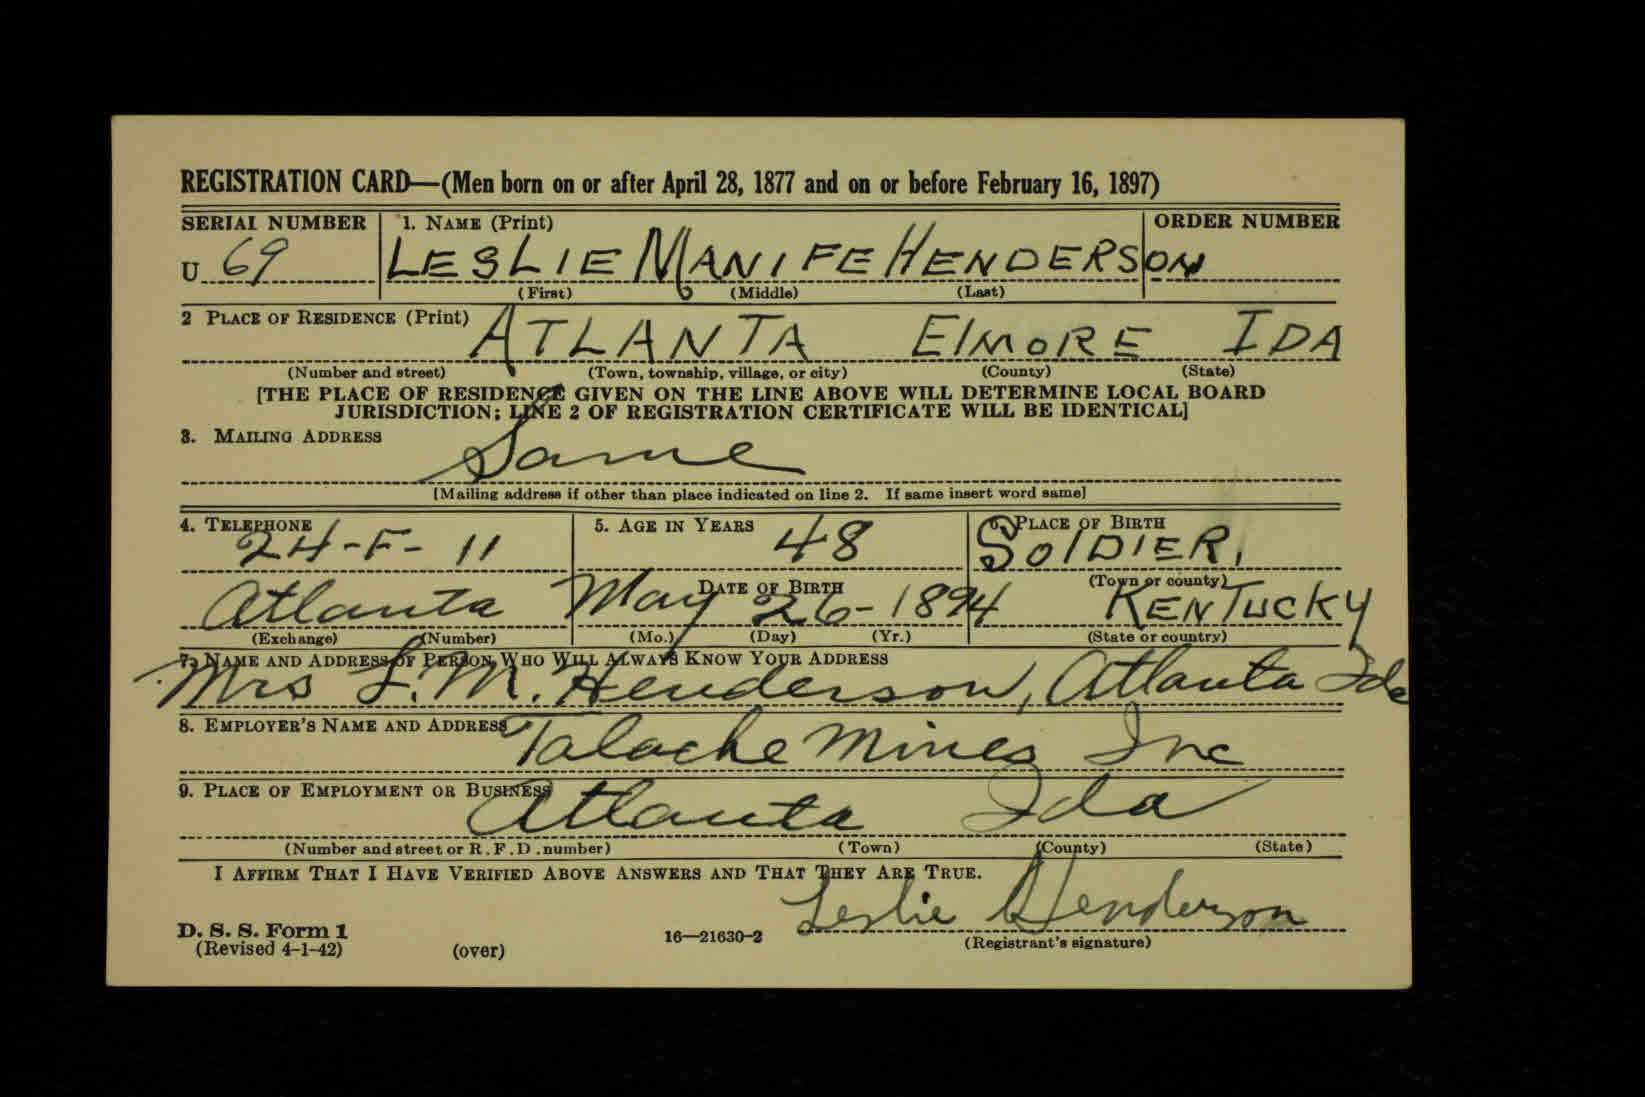 REGISTRATION CARD—(Men born on or after April 28, 1877 and on or before February 16, 1897)
SERIAL NUMBER 1. NAME (Print) ORDER NUMBER
U 69 LESLIE MANIFE HENDERSON
(First) (Middle) (Last)
2 PLACE OF RESIDENCE (Print)
ATLANTA ElMORE IDA
(Number and street) (Town, township, village, or city) (County) (State)
[THE PLACE OF RESIDENCE GIVEN ON THE LINE ABOVE WILL DETERMINE LOCAL BOARD
JURISDICTION; LINE 2 OF REGISTRATION CERTIFICATE WILL BE IDENTICAL]
3. MAILING ADDRESS
Same
[Mailing address if other than place indicated on line 2. If same insert word same]
4. TELEPHONE 5. AGE IN YEARS 6. PLACE OF BIRTH
24-F-11 48 SOlDIER,
DATE OF BIRTH (Town or county)
Atlanta May 26-1894 KENTUCKY
(Exchange) (Number) (Mo.) (Day) (Yr.) (State or country)
7. NAME AND ADDRESS OF PERSON WHO WILL ALWAYS KNOW YOUR ADDRESS
Mrs L.M. Henderson, Atlanta Ida
8. EMPLOYER'S NAME AND ADDRESS
Talache Mines Inc
9. PLACE OF EMPLOYMENT OR BUSINESS
Atlanta Ida
(Number and street or R.F.D. number) (Town) (County) (State)
I AFFIRM THAT I HAVE VERIFIED ABOVE ANSWERS AND THAT THEY ARE TRUE.
Leslie Henderson
D. S. S. Form 1
(Revised 4-1-42) (over) 16—21630-2 (Registrant's signature)